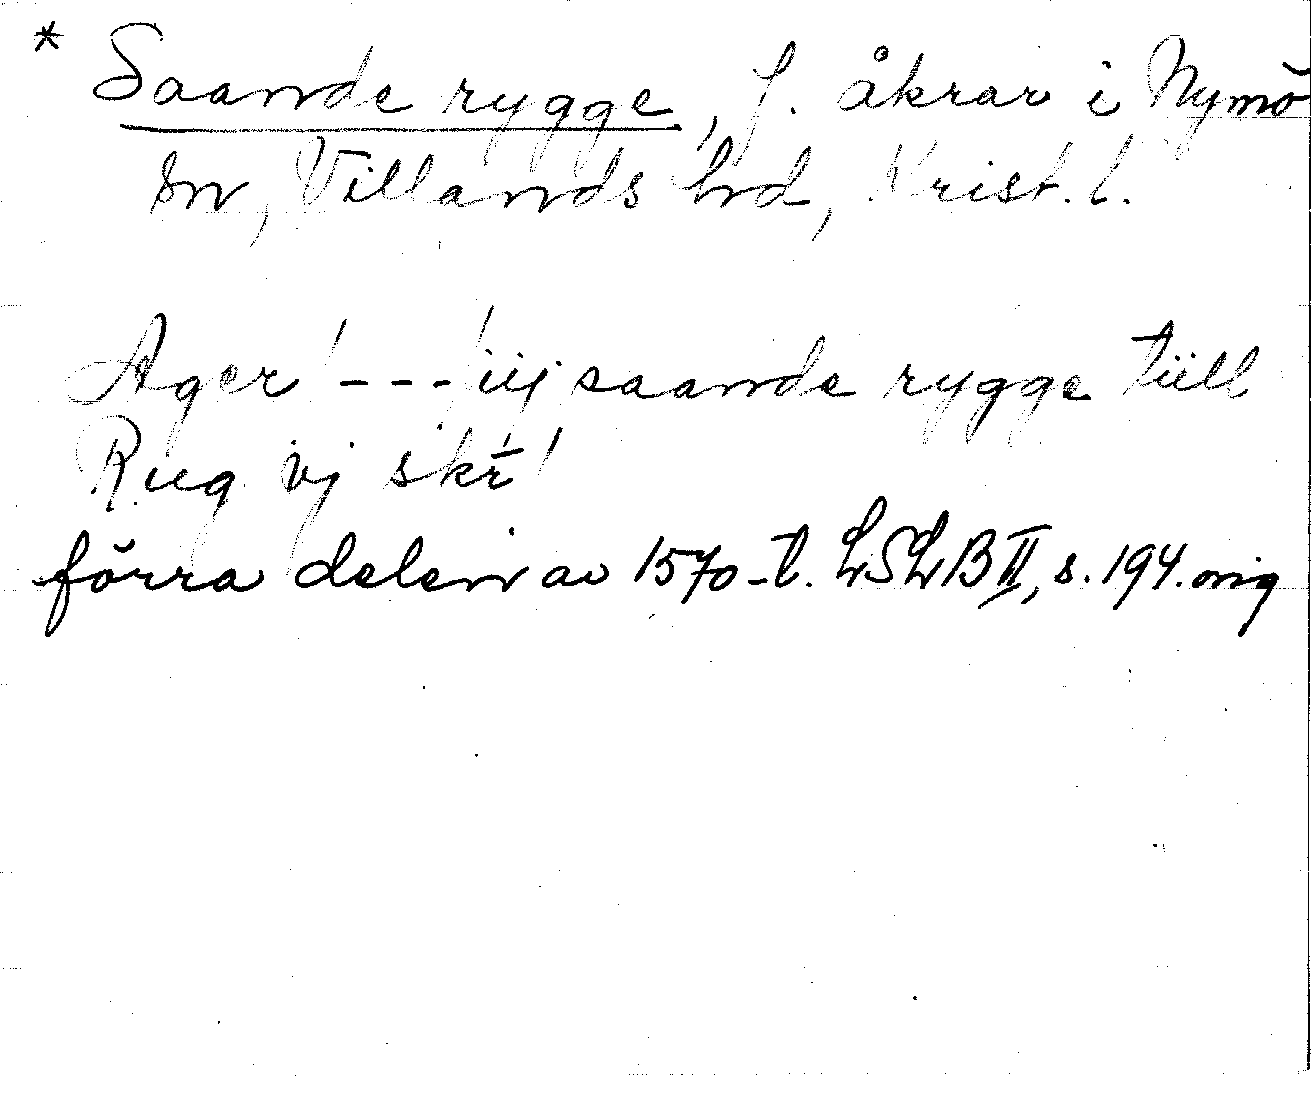 * Saande rygge, f. åkrar i Nymö
sn, Villands hrd, Krist. l.
Ager' --- 'iij saande rygge tiill
Rug vj skr̄'
förra delen av 1570-t. LSLB II, s. 194. orig